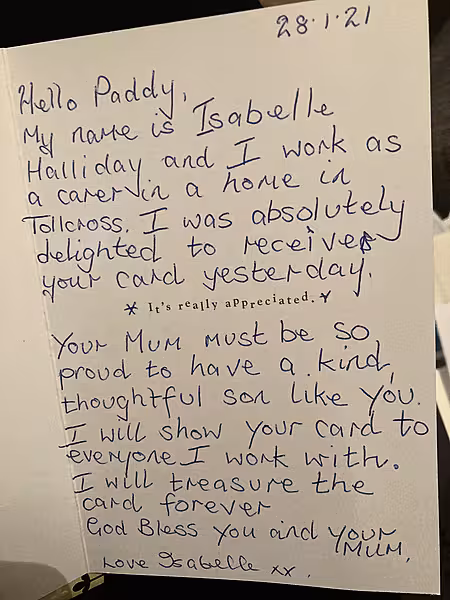 28.1.21
Hello Paddy,
My name is Isabelle
Halliday and I work as
a carer in a home in
Tollcross. I was absolutely
delighted to receive
your card yesterday.
* It's really appreciated. *
Your Mum must be so
proud to have a kind,
thoughtful son like you.
I will show your card to
everyone I work with.
I will treasure the
card forever
God Bless you and your
Mum.
Love Isabelle xx.